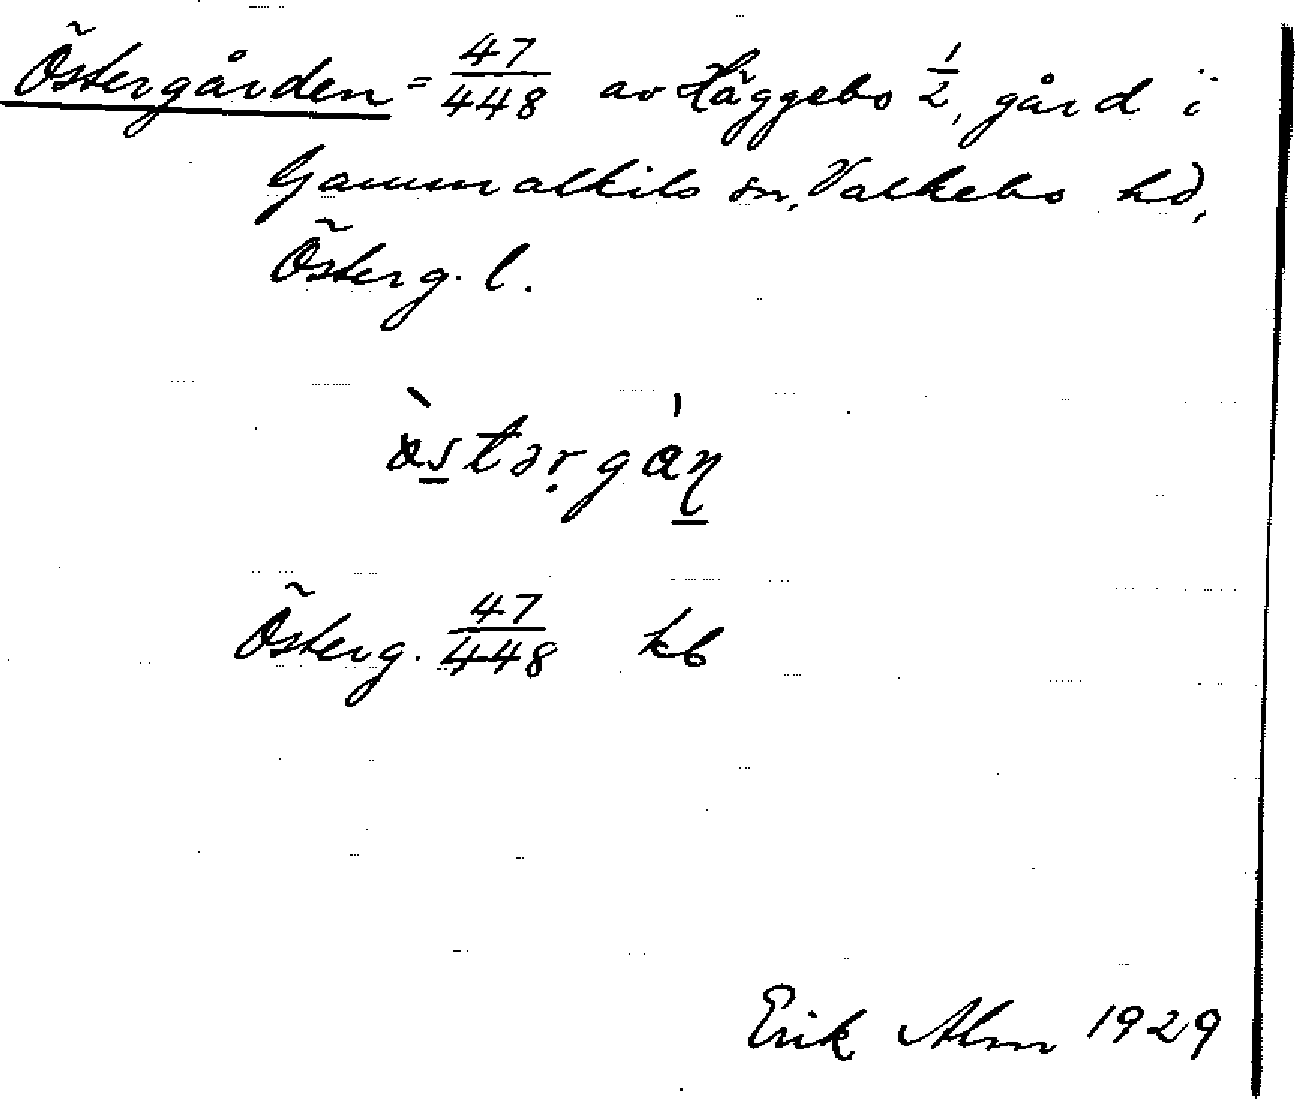 Östergården = 47/448 av Häggebo 1/2, gård i
Gammalkils sn, Valkebo hd,
Österg. l.
östərgån
Österg. 47/448 kb
Erik Alm 1929